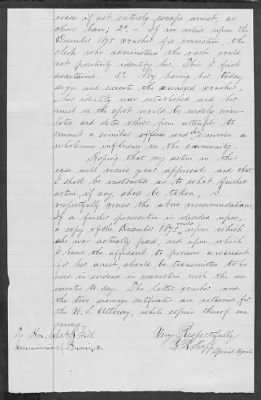 ences if not entirely escape arrest, as
others have; 2d - If we relied upon the
December 1875 voucher for conviction, the
clerk who administered the oath could
not positively identify her. This I first
ascertained. 3d By having her today
sign and execute the enraged voucher,
her identity was established and her
arrest in the effort would be widely circu-
lated and deter others from attempts to
commit a similar offence and the exercise a
wholesome influence in the community.
Hoping that my action in the
case will receive your approval and that
I shall be instructed as to what further
action, if any, shall be taken, I
respectfully renew the above recommendation.
If a further prosecution is decided upon,
a copy of the December 1875 voucher upon which
she was actually paid, and upon which
I have the affidavit to procure a warrant
for her arrest, should be transmitted to be
used in evidence in connection with the
to day. The latter voucher and
the two marriage certificates are retained for
the U.S. Attorney, while copies thereof are
Very Respectfully
Special Agent
To Hon.
Commissioner of Pensions